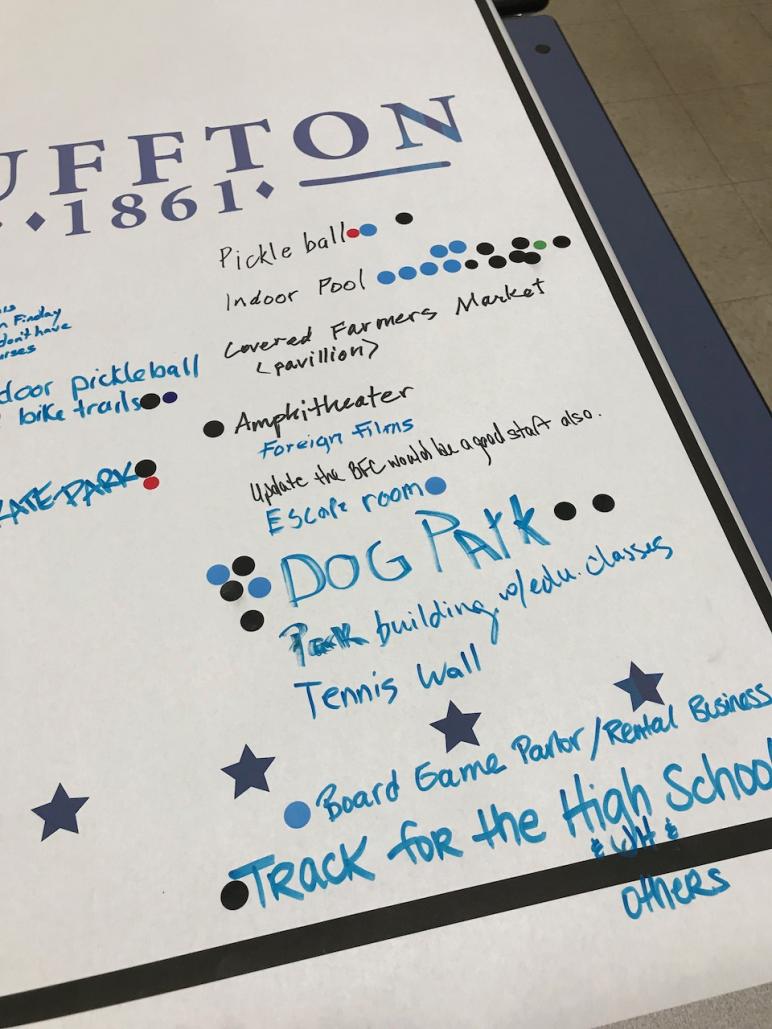 UFFTON
1861
Pickle ball
Indoor Pool
Covered Farmers Market
<pavillion>
Findlay
don't have
door pickleball
bike trails
Amphitheater
Foreign Films
KATE PARK
Update the BFC would be a good start also.
Escape room
DOG PARK
Park building w/edu. classes
Tennis Wall
Board Game Parlor/Rental Business
Track for the High School
others